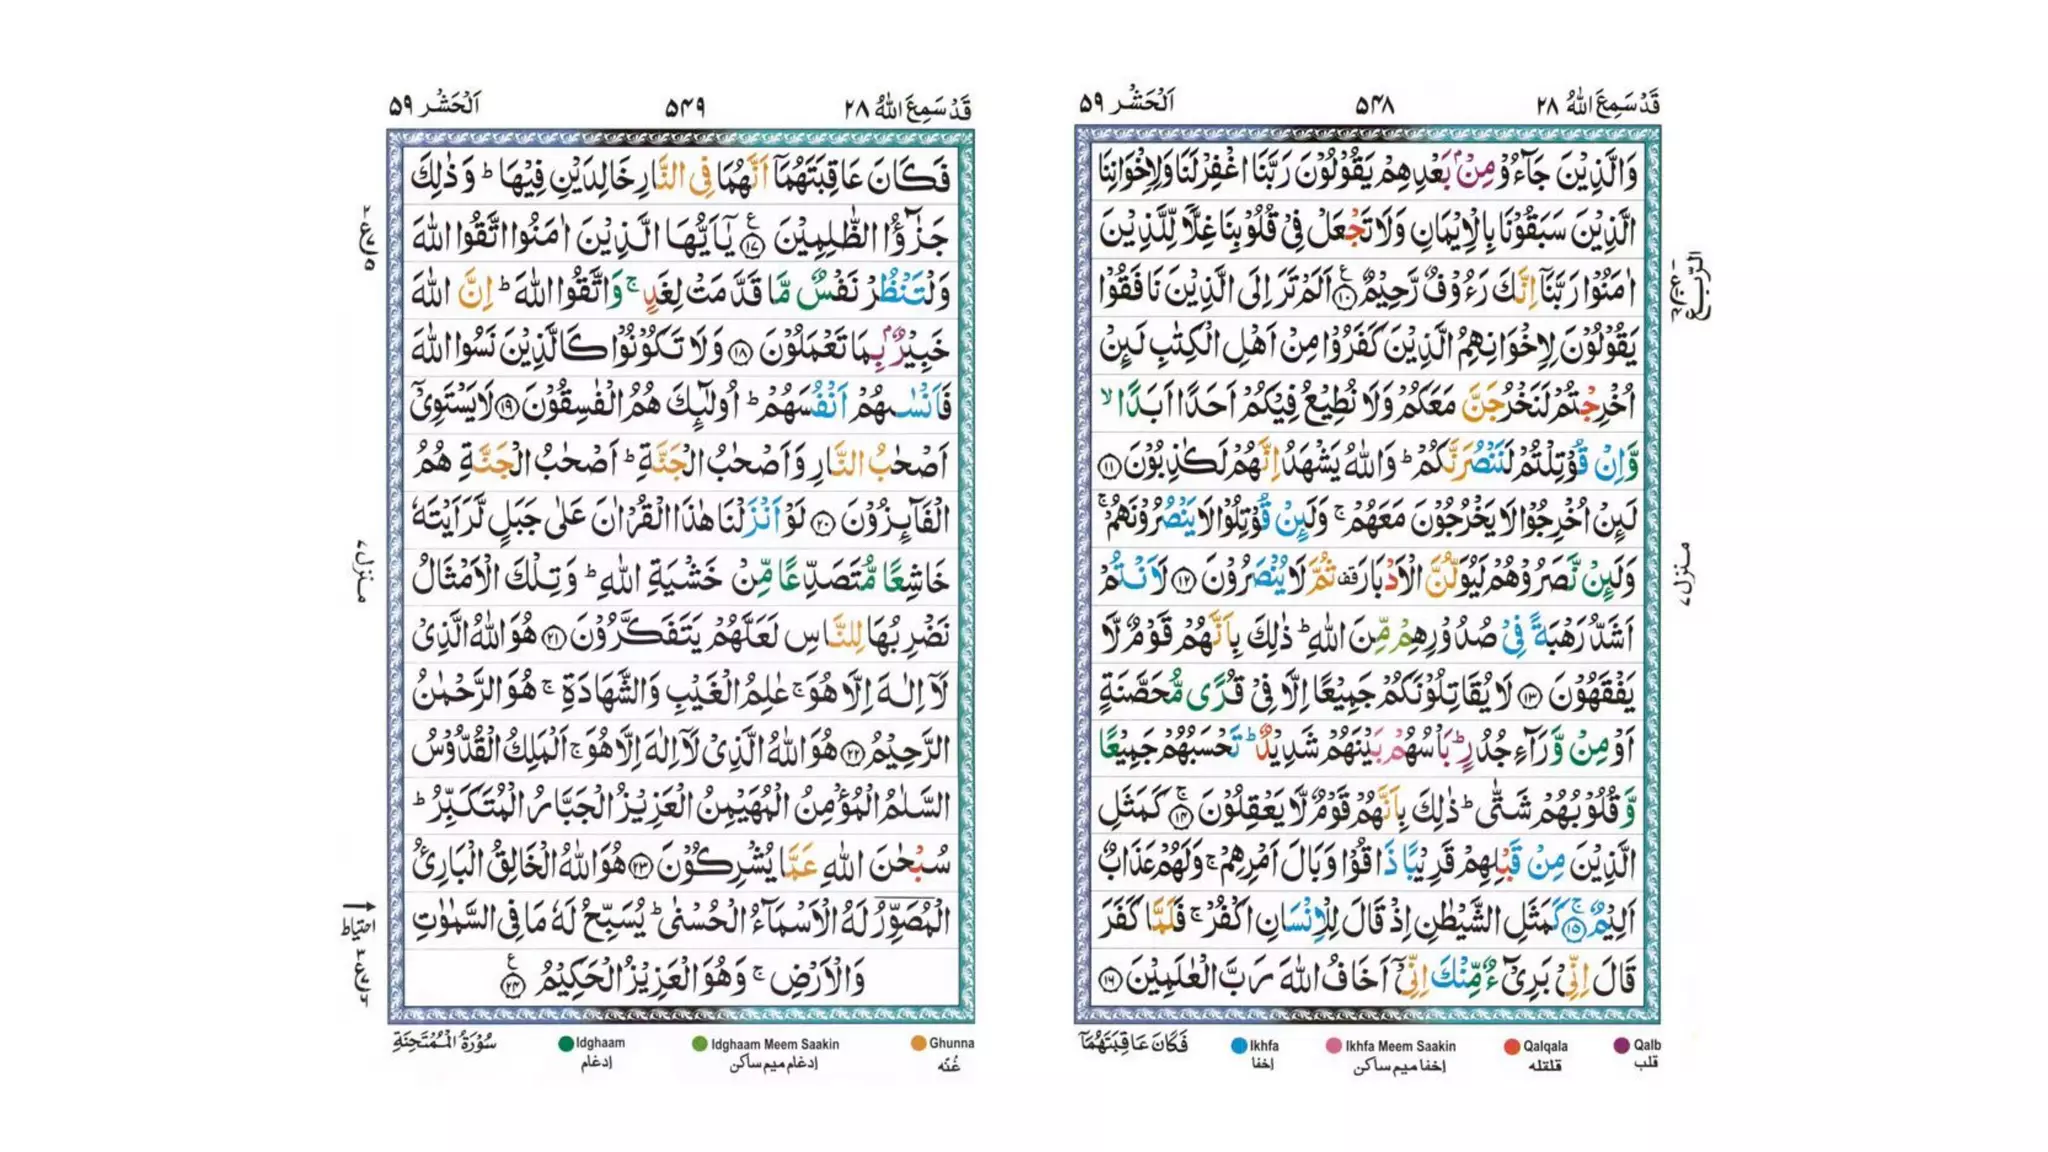 قَدْ سَمِعَ اللهُ ۲۸
۵۴۸
اَلْحَشْر ۵۹
وَالَّذِیْنَ جَآءُوْ مِنْۢ بَعْدِهِمْ یَقُوْلُوْنَ رَبَّنَا اغْفِرْ لَنَا وَلِاِخْوَانِنَا
الَّذِیْنَ سَبَقُوْنَا بِالْاِیْمَانِ وَلَا تَجْعَلْ فِیْ قُلُوْبِنَا غِلًّا لِّلَّذِیْنَ
اٰمَنُوْا رَبَّنَاۤ اِنَّكَ رَءُوْفٌ رَّحِیْمٌ ۱۰ ع اَلَمْ تَرَ اِلَی الَّذِیْنَ نَافَقُوْا
یَقُوْلُوْنَ لِاِخْوَانِهِمُ الَّذِیْنَ كَفَرُوْا مِنْ اَهْلِ الْكِتٰبِ لَئِنْ
اُخْرِجْتُمْ لَنَخْرُجَنَّ مَعَكُمْ وَلَا نُطِیْعُ فِیْكُمْ اَحَدًا اَبَدًا ۙ
وَّاِنْ قُوْتِلْتُمْ لَنَنْصُرَنَّكُمْ ؕ وَاللهُ یَشْهَدُ اِنَّهُمْ لَكٰذِبُوْنَ ۱۱
لَئِنْ اُخْرِجُوْا لَا یَخْرُجُوْنَ مَعَهُمْ ۚ وَلَئِنْ قُوْتِلُوْا لَا یَنْصُرُوْنَهُمْ ۚ
وَلَئِنْ نَّصَرُوْهُمْ لَیُوَلُّنَّ الْاَدْبَارَ قف ثُمَّ لَا یُنْصَرُوْنَ ۱۲ لَاَنْتُمْ
اَشَدُّ رَهْبَةً فِیْ صُدُوْرِهِمْ مِّنَ اللهِ ؕ ذٰلِكَ بِاَنَّهُمْ قَوْمٌ لَّا
یَفْقَهُوْنَ ۱۳ لَا یُقَاتِلُوْنَكُمْ جَمِیْعًا اِلَّا فِیْ قُرًی مُّحَصَّنَةٍ
اَوْ مِنْ وَّرَآءِ جُدُرٍ ؕ بَاْسُهُمْ بَیْنَهُمْ شَدِیْدٌ ؕ تَحْسَبُهُمْ جَمِیْعًا
وَّقُلُوْبُهُمْ شَتّٰی ؕ ذٰلِكَ بِاَنَّهُمْ قَوْمٌ لَّا یَعْقِلُوْنَ ۱۴ ۚ كَمَثَلِ
الَّذِیْنَ مِنْ قَبْلِهِمْ قَرِیْبًا ذَاقُوْا وَبَالَ اَمْرِهِمْ ۚ وَلَهُمْ عَذَابٌ
اَلِیْمٌ ۱۵ ۚ كَمَثَلِ الشَّیْطٰنِ اِذْ قَالَ لِلْاِنْسَانِ اكْفُرْ ۚ فَلَمَّا كَفَرَ
قَالَ اِنِّیْ بَرِیْٓءٌ مِّنْكَ اِنِّیْۤ اَخَافُ اللهَ رَبَّ الْعٰلَمِیْنَ ۱۶
الربع
منزل ۷
Qalb قلب
Qalqala قلقله
Ikhfa Meem Saakin إخفا میم ساکن
Ikhfa إخفا
فَكَانَ عَاقِبَتَهُمَاۤ
قَدْ سَمِعَ اللهُ ۲۸
۵۴۹
اَلْحَشْر ۵۹
فَكَانَ عَاقِبَتَهُمَاۤ اَنَّهُمَا فِی النَّارِ خَالِدَیْنِ فِیْهَا ؕ وَذٰلِكَ
جَزٰٓؤُا الظّٰلِمِیْنَ ۱۷ ع یٰۤاَیُّهَا الَّذِیْنَ اٰمَنُوا اتَّقُوا اللهَ
وَلْتَنْظُرْ نَفْسٌ مَّا قَدَّمَتْ لِغَدٍ ۚ وَاتَّقُوا اللهَ ؕ اِنَّ اللهَ
خَبِیْرٌۢ بِمَا تَعْمَلُوْنَ ۱۸ وَلَا تَكُوْنُوْا كَالَّذِیْنَ نَسُوا اللهَ
فَاَنْسٰىهُمْ اَنْفُسَهُمْ ؕ اُولٰٓئِكَ هُمُ الْفٰسِقُوْنَ ۱۹ لَا یَسْتَوِیْۤ
اَصْحٰبُ النَّارِ وَاَصْحٰبُ الْجَنَّةِ ؕ اَصْحٰبُ الْجَنَّةِ هُمُ
الْفَآئِزُوْنَ ۲۰ لَوْ اَنْزَلْنَا هٰذَا الْقُرْاٰنَ عَلٰی جَبَلٍ لَّرَاَیْتَهٗ
خَاشِعًا مُّتَصَدِّعًا مِّنْ خَشْیَةِ اللهِ ؕ وَتِلْكَ الْاَمْثَالُ
نَضْرِبُهَا لِلنَّاسِ لَعَلَّهُمْ یَتَفَكَّرُوْنَ ۲۱ هُوَ اللهُ الَّذِیْ
لَاۤ اِلٰهَ اِلَّا هُوَ ۚ عٰلِمُ الْغَیْبِ وَالشَّهَادَةِ ۚ هُوَ الرَّحْمٰنُ
الرَّحِیْمُ ۲۲ هُوَ اللهُ الَّذِیْ لَاۤ اِلٰهَ اِلَّا هُوَ ۚ اَلْمَلِكُ الْقُدُّوْسُ
السَّلٰمُ الْمُؤْمِنُ الْمُهَیْمِنُ الْعَزِیْزُ الْجَبَّارُ الْمُتَكَبِّرُ ؕ
سُبْحٰنَ اللهِ عَمَّا یُشْرِكُوْنَ ۲۳ هُوَ اللهُ الْخَالِقُ الْبَارِئُ
الْمُصَوِّرُ لَهُ الْاَسْمَآءُ الْحُسْنٰی ؕ یُسَبِّحُ لَهٗ مَا فِی السَّمٰوٰتِ
وَالْاَرْضِ ۚ وَهُوَ الْعَزِیْزُ الْحَكِیْمُ ۲۴ ع
منزل ۷
احتیاط
Ghunna غُنّه
Idghaam Meem Saakin إدغام میم ساکن
Idghaam إدغام
سُوْرَةُ الْمُمْتَحِنَةِ